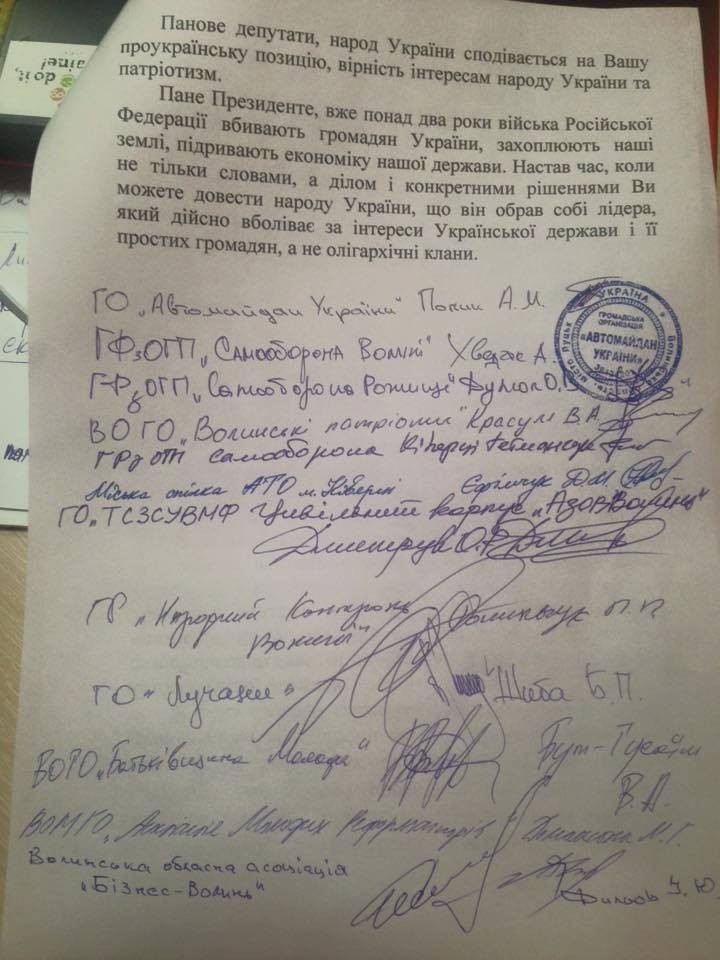 Панове депутати, народ України сподівається на Вашу
проукраїнську позицію, вірність інтересам народу України та
патріотизм.
Пане Президенте, вже понад два роки війська Російської
Федерації вбивають громадян України, захоплюють наші
землі, підривають економіку нашої держави. Настав час, коли
не тільки словами, а ділом і конкретними рішеннями Ви
можете довести народу України, що він обрав собі лідера,
який дійсно вболіває за інтереси Української держави і її
простих громадян, а не олігархічні клани.
ГО „Автомайдан України"  А.М.
УКРАЇНА
ГРОМАДСЬКА
ОРГАНІЗАЦІЯ
«АВТОМАЙДАН
УКРАЇНИ»
місто Луцьк
ГФзОГП „Самооборона Волині" Хведас А.
ГФзОГП „Самооборона Рожище"
ВОГО „Волинські патріоти" Красуля В.А.
самооборона Ківерці
Міська спілка АТО м. Ківерці Єфімчук Ю.М.
ГО „ТСЗСУВМФ Цивільний корпус „Азов Волинь"
ГФ „Народний Контроль П.П.
Волині"
ГО „Лучани" Шиба Б.П.
ВОГО „Батьківщина Молода" Бут-Гусаїм
В.А.
ВОМГО „ Молодих Реформаторів" М.Г.
Волинська обласна асоціація
„Бізнес-Волинь" Ю.